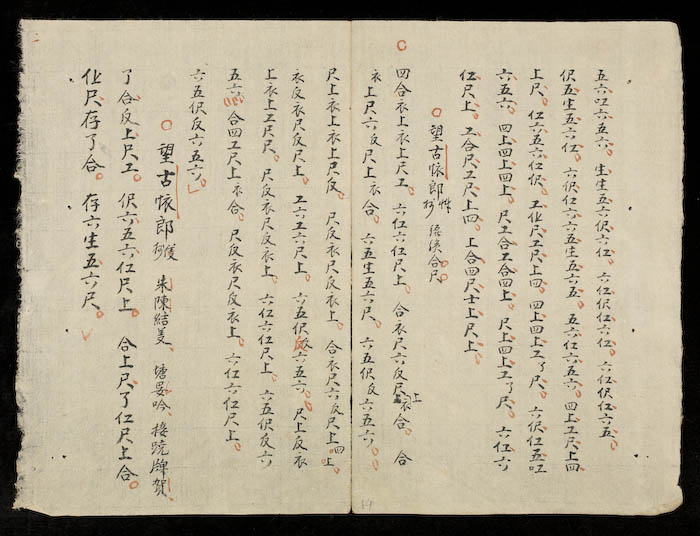 五六叹六五六。生生五六伬六仜。六伬仜六仜。六仜伬仜六五。
伬五生五六仜。六伬仜六六五生五六五。五六仜六五六。四上工尺上四
上尺。仜六五六仜伬。工化尺工尺上四。四上四上工了尺。六伬仜五叹
六五六。四上四上四上。尺工合工合四上。尺上四上工了尺。六仜六
仜尺上。工合尺工尺上四。上合四尺士上尺上。
望古怀郎 浯溪合尺
四合衣上衣上尺工。六仜六仜尺上。合衣尺六反尺上衣合。合
衣上尺六反尺上衣合。六五生五六尺。六五伬反六五六。
尺上衣上衣上尺反。尺反衣尺反衣上。合衣尺六反尺上四上。
衣反衣尺反尺上。工六工六尺上。六五伬反六五六。尺上反衣
上衣上工尺尺。尺反衣尺反衣上。六仜六仜尺上。六五伬反六
五六。合四工尺上衣合。尺反衣尺反衣上。六仜六仜尺上。
六五伬反六五六。
望古怀郎 朱陳結美 塘晏吟 接送牌賀
了合反上尺工。伬六五六仜尺上。合上尺了仜尺上合
化尺存了合。存六生五六尺。